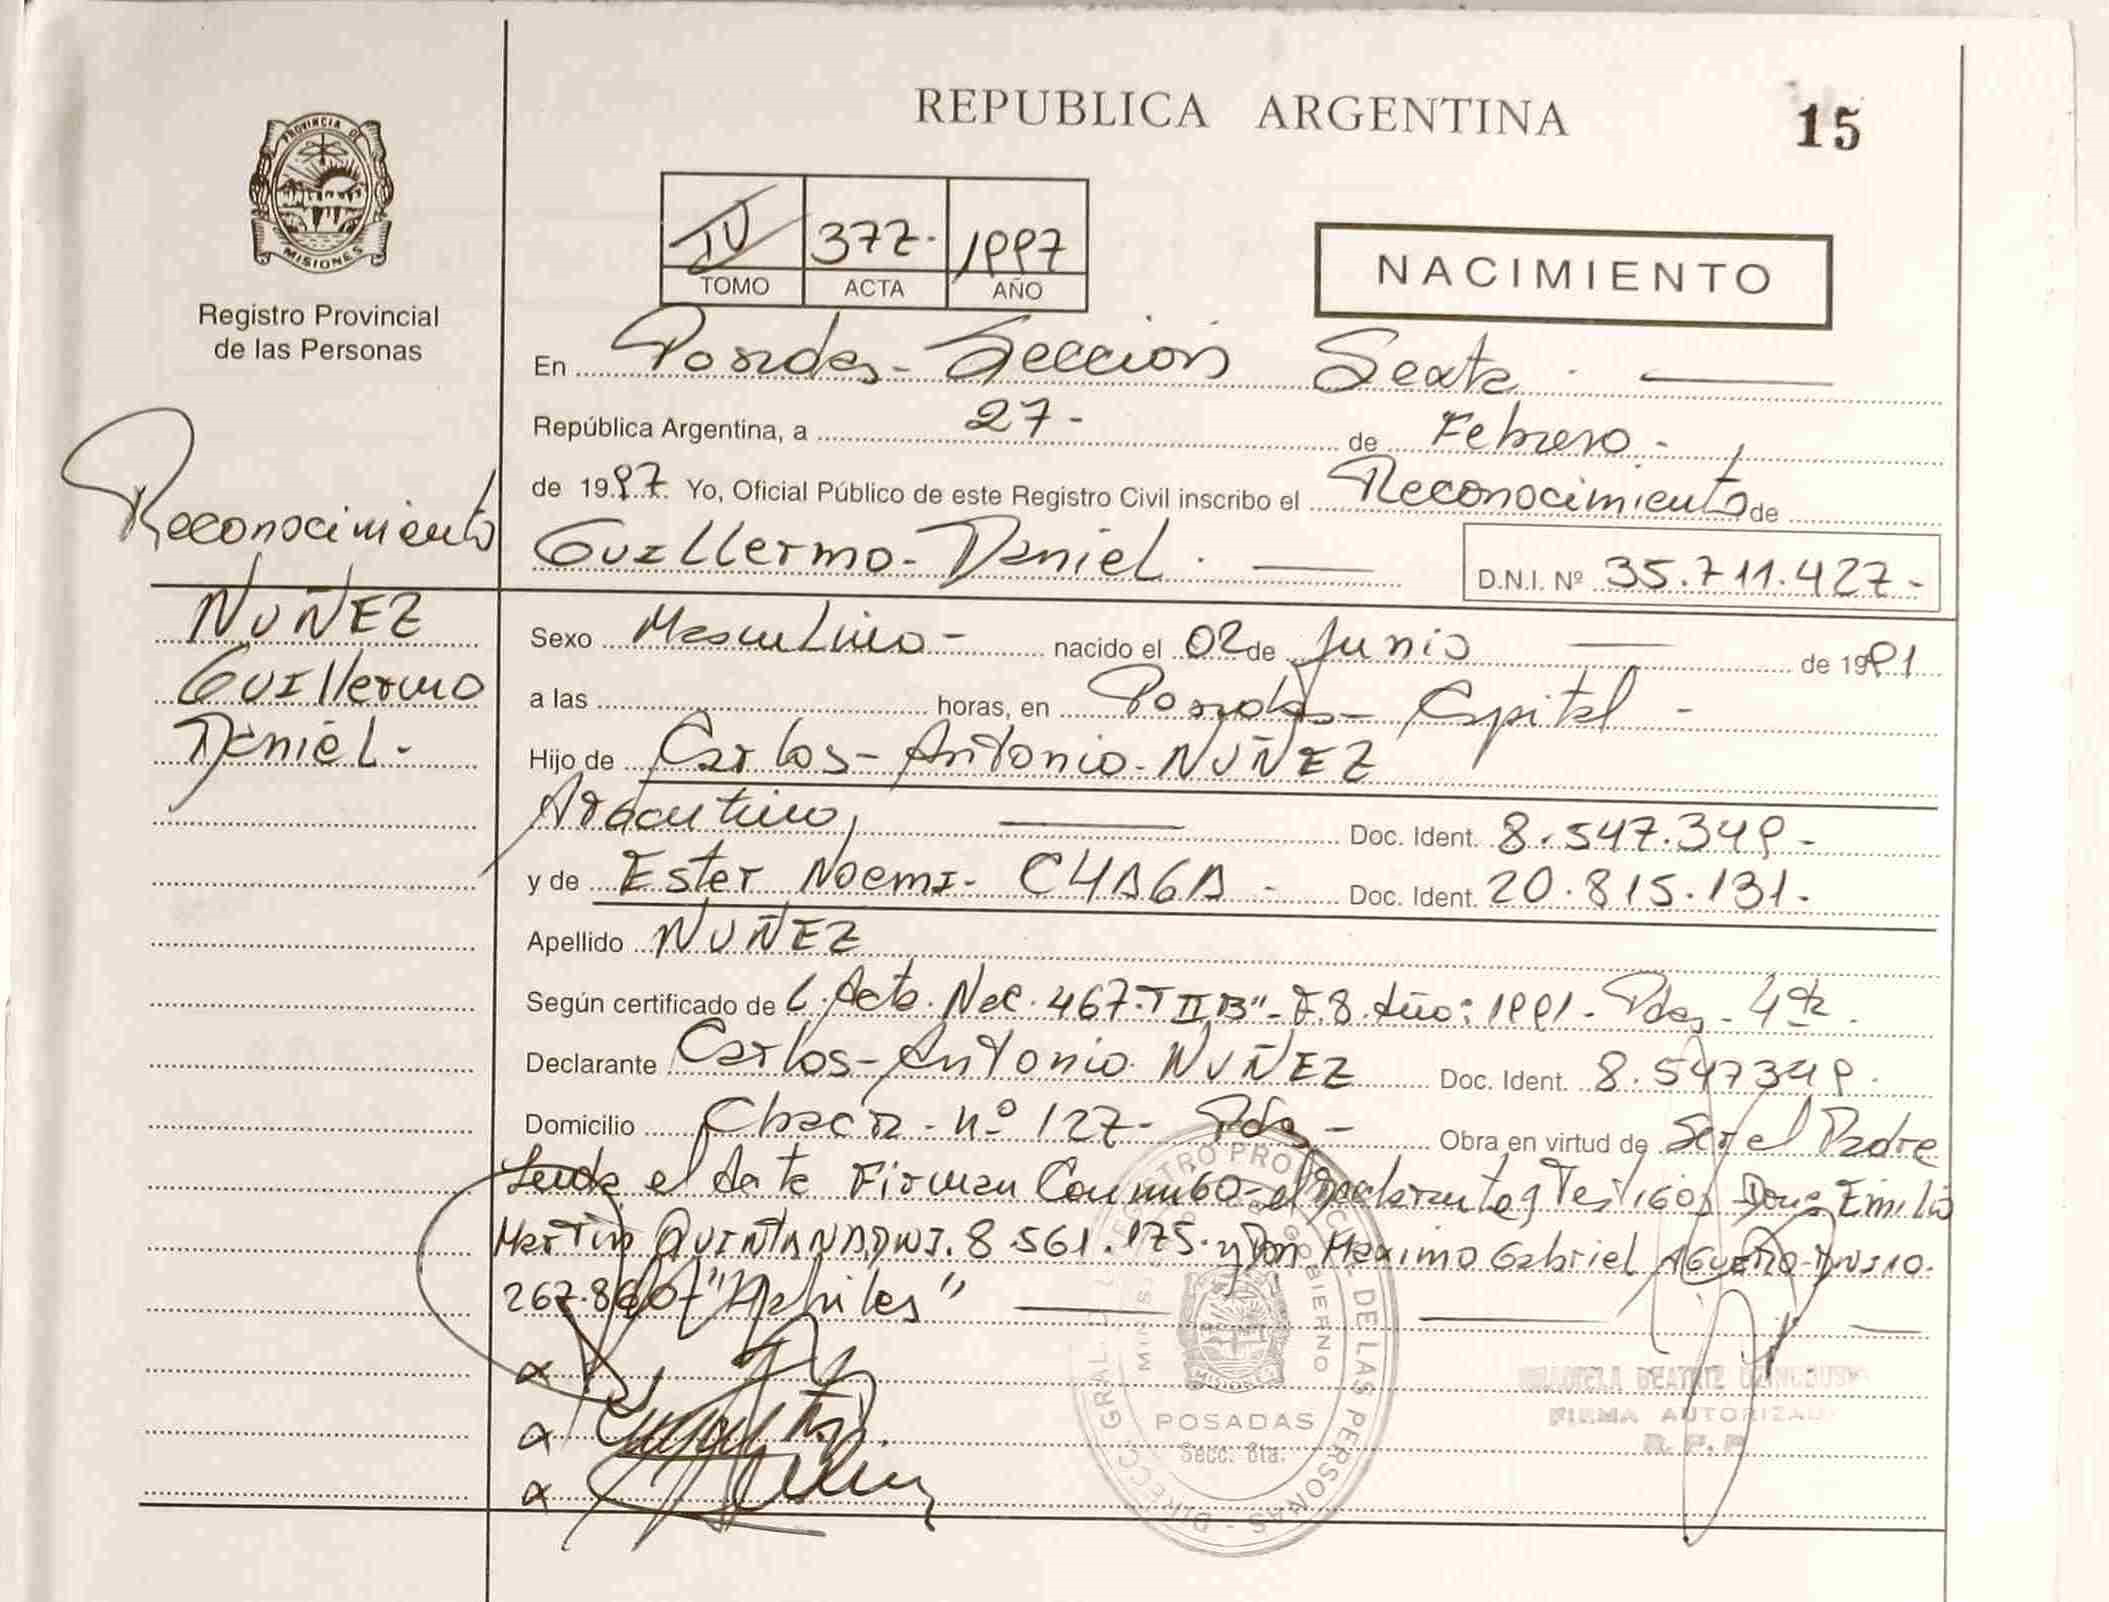 REPUBLICA ARGENTINA
15
PROVINCIA DE
MISIONES
Registro Provincial
de las Personas
IV 377. 1997
TOMO ACTA AÑO
NACIMIENTO
En Posadas - Seccion Sexta . —
República Argentina, a 27 - de Febrero -
de 1997. Yo, Oficial Público de este Registro Civil inscribo el Reconocimiento de
Guillermo - Daniel . — D.N.I. Nº 35.711.427 -
Reconocimiento
NUÑEZ
Guillermo
Daniel -
Sexo Masculino - nacido el 02 de Junio — de 1991
a las horas, en Posadas - Capital -
Hijo de Carlos - Antonio - NUÑEZ
Argentino, — Doc. Ident. 8.547.349 -
y de Ester Noemi - CHAGA - Doc. Ident. 20.815.131 -
Apellido NUÑEZ
Según certificado de Acta. Nac. 467. T II B" - F. 8. Año: 1991 - Pdas - 4ta .
Declarante Carlos - Antonio NUÑEZ Doc. Ident. 8.547349.
Domicilio nº 127 - Pdas - Obra en virtud de Ser el Padre
Leida el Acta Firman Conmigo el Declarante y Testigos Emilio
Martin QUINTANA DNI. 8.561.175 - y Don Maximo Gabriel AGUERO - DNI 10.
267.860 - "Habiles" —
DIRECC. GRAL. DEL REGISTRO PROVINCIAL DE LAS PERSONAS
GOBIERNO
POSADAS
Secc. 6ta.
FIRMA AUTORIZADA
R. P. P.